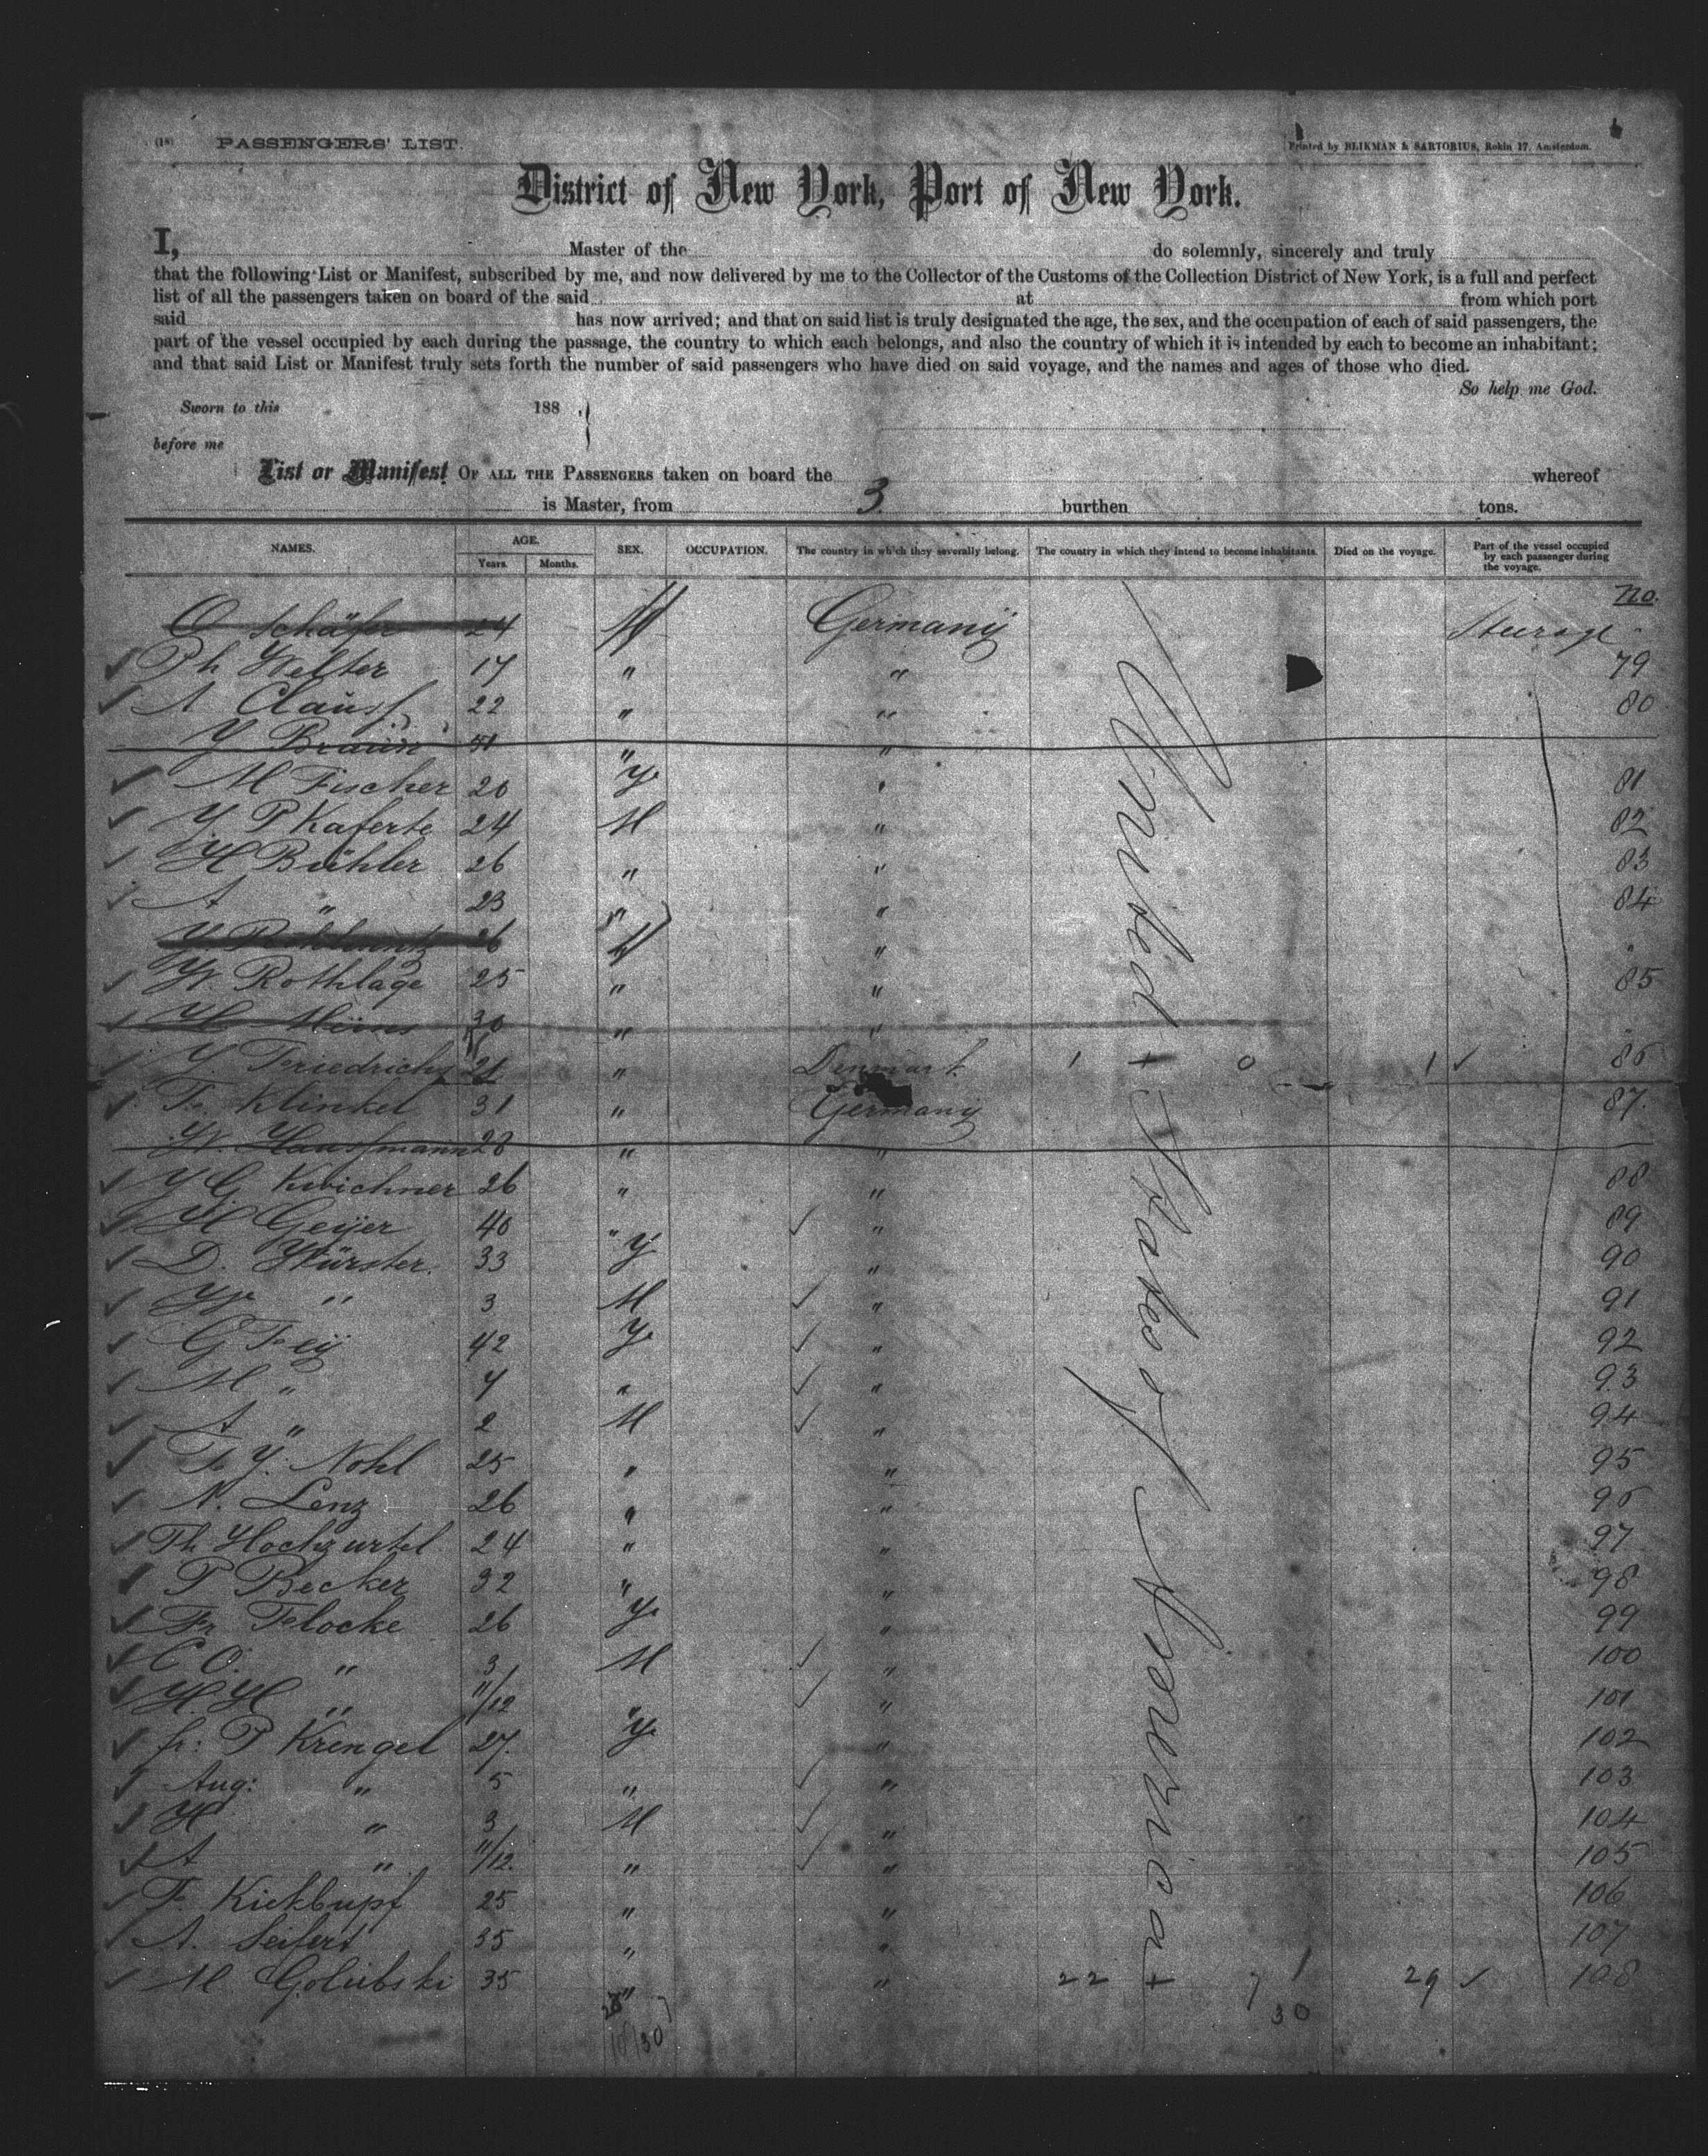 (18) PASSENGERS' LIST. Printed by BLIKMAN & SARTORIUS, Rokin 17, Amsterdam.
District of New York, Port of New York.
I, Master of the do solemnly, sincerely and truly
that the following List or Manifest, subscribed by me, and now delivered by me to the Collector of the Customs of the Collection District of New York, is a full and perfect
list of all the passengers taken on board of the said at from which port
said has now arrived; and that on said list is truly designated the age, the sex, and the occupation of each of said passengers, the
part of the vessel occupied by each during the passage, the country to which each belongs, and also the country of which it is intended by each to become an inhabitant;
and that said List or Manifest truly sets forth the number of said passengers who have died on said voyage, and the names and ages of those who died.
So help me God.
Sworn to this 188 .
before me
List or Manifest OF ALL THE PASSENGERS taken on board the whereof
is Master, from 3 burthen tons.
NAMES. AGE. SEX. OCCUPATION. The country in which they severally belong. The country in which they intend to become inhabitants. Died on the voyage. Part of the vessel occupied by each passenger during the voyage.
Years. Months.
No.
O Schäfer 24 M Germany Steerage
Ph Welter 17 " " 79
A Clauss 22 " " 80
Y Braun 51 " "
M Fischer 20 " 81
Y P Kaferte 24 M " 82
H Bühler 26 " " 83
A " 23 " " 84
26 "
W. Rothlage 25 " " 85
H 30 " "
Y. Friedrichs 21 " Denmark 1 + 0 1 ✓ 86
Fr Klinkel 31 " Germany 87.
W. Haussmann 28 " "
Y G Kirichner 26 " " 88
H Geijer 40 " " 89
D. Würster. 33 " 90
W " 3 M " 91
G Feij 42 " 92
M " 4 " " 93
A " 2 M " 94
Fr Y. Nohl 25 " " 95
N. Lenz 26 " " 96
Th Hochzurtel 24 " " 97
P Becker 32 " " 98
Fr Flocke 26 " 99
C O. " 3 M " 100
H. H " 11/12 " " 101
fr: P Krengel 27. " 102
Aug: " 5 " " 103
H " 3 M " 104
A " 11/12. " " 105
F. Kickbupf 25 " " 106
A. Seifert 35 " " 107
M Golubski 35 " " 22 + 7 1 29 ✓ 108
30
10/30
United States of America